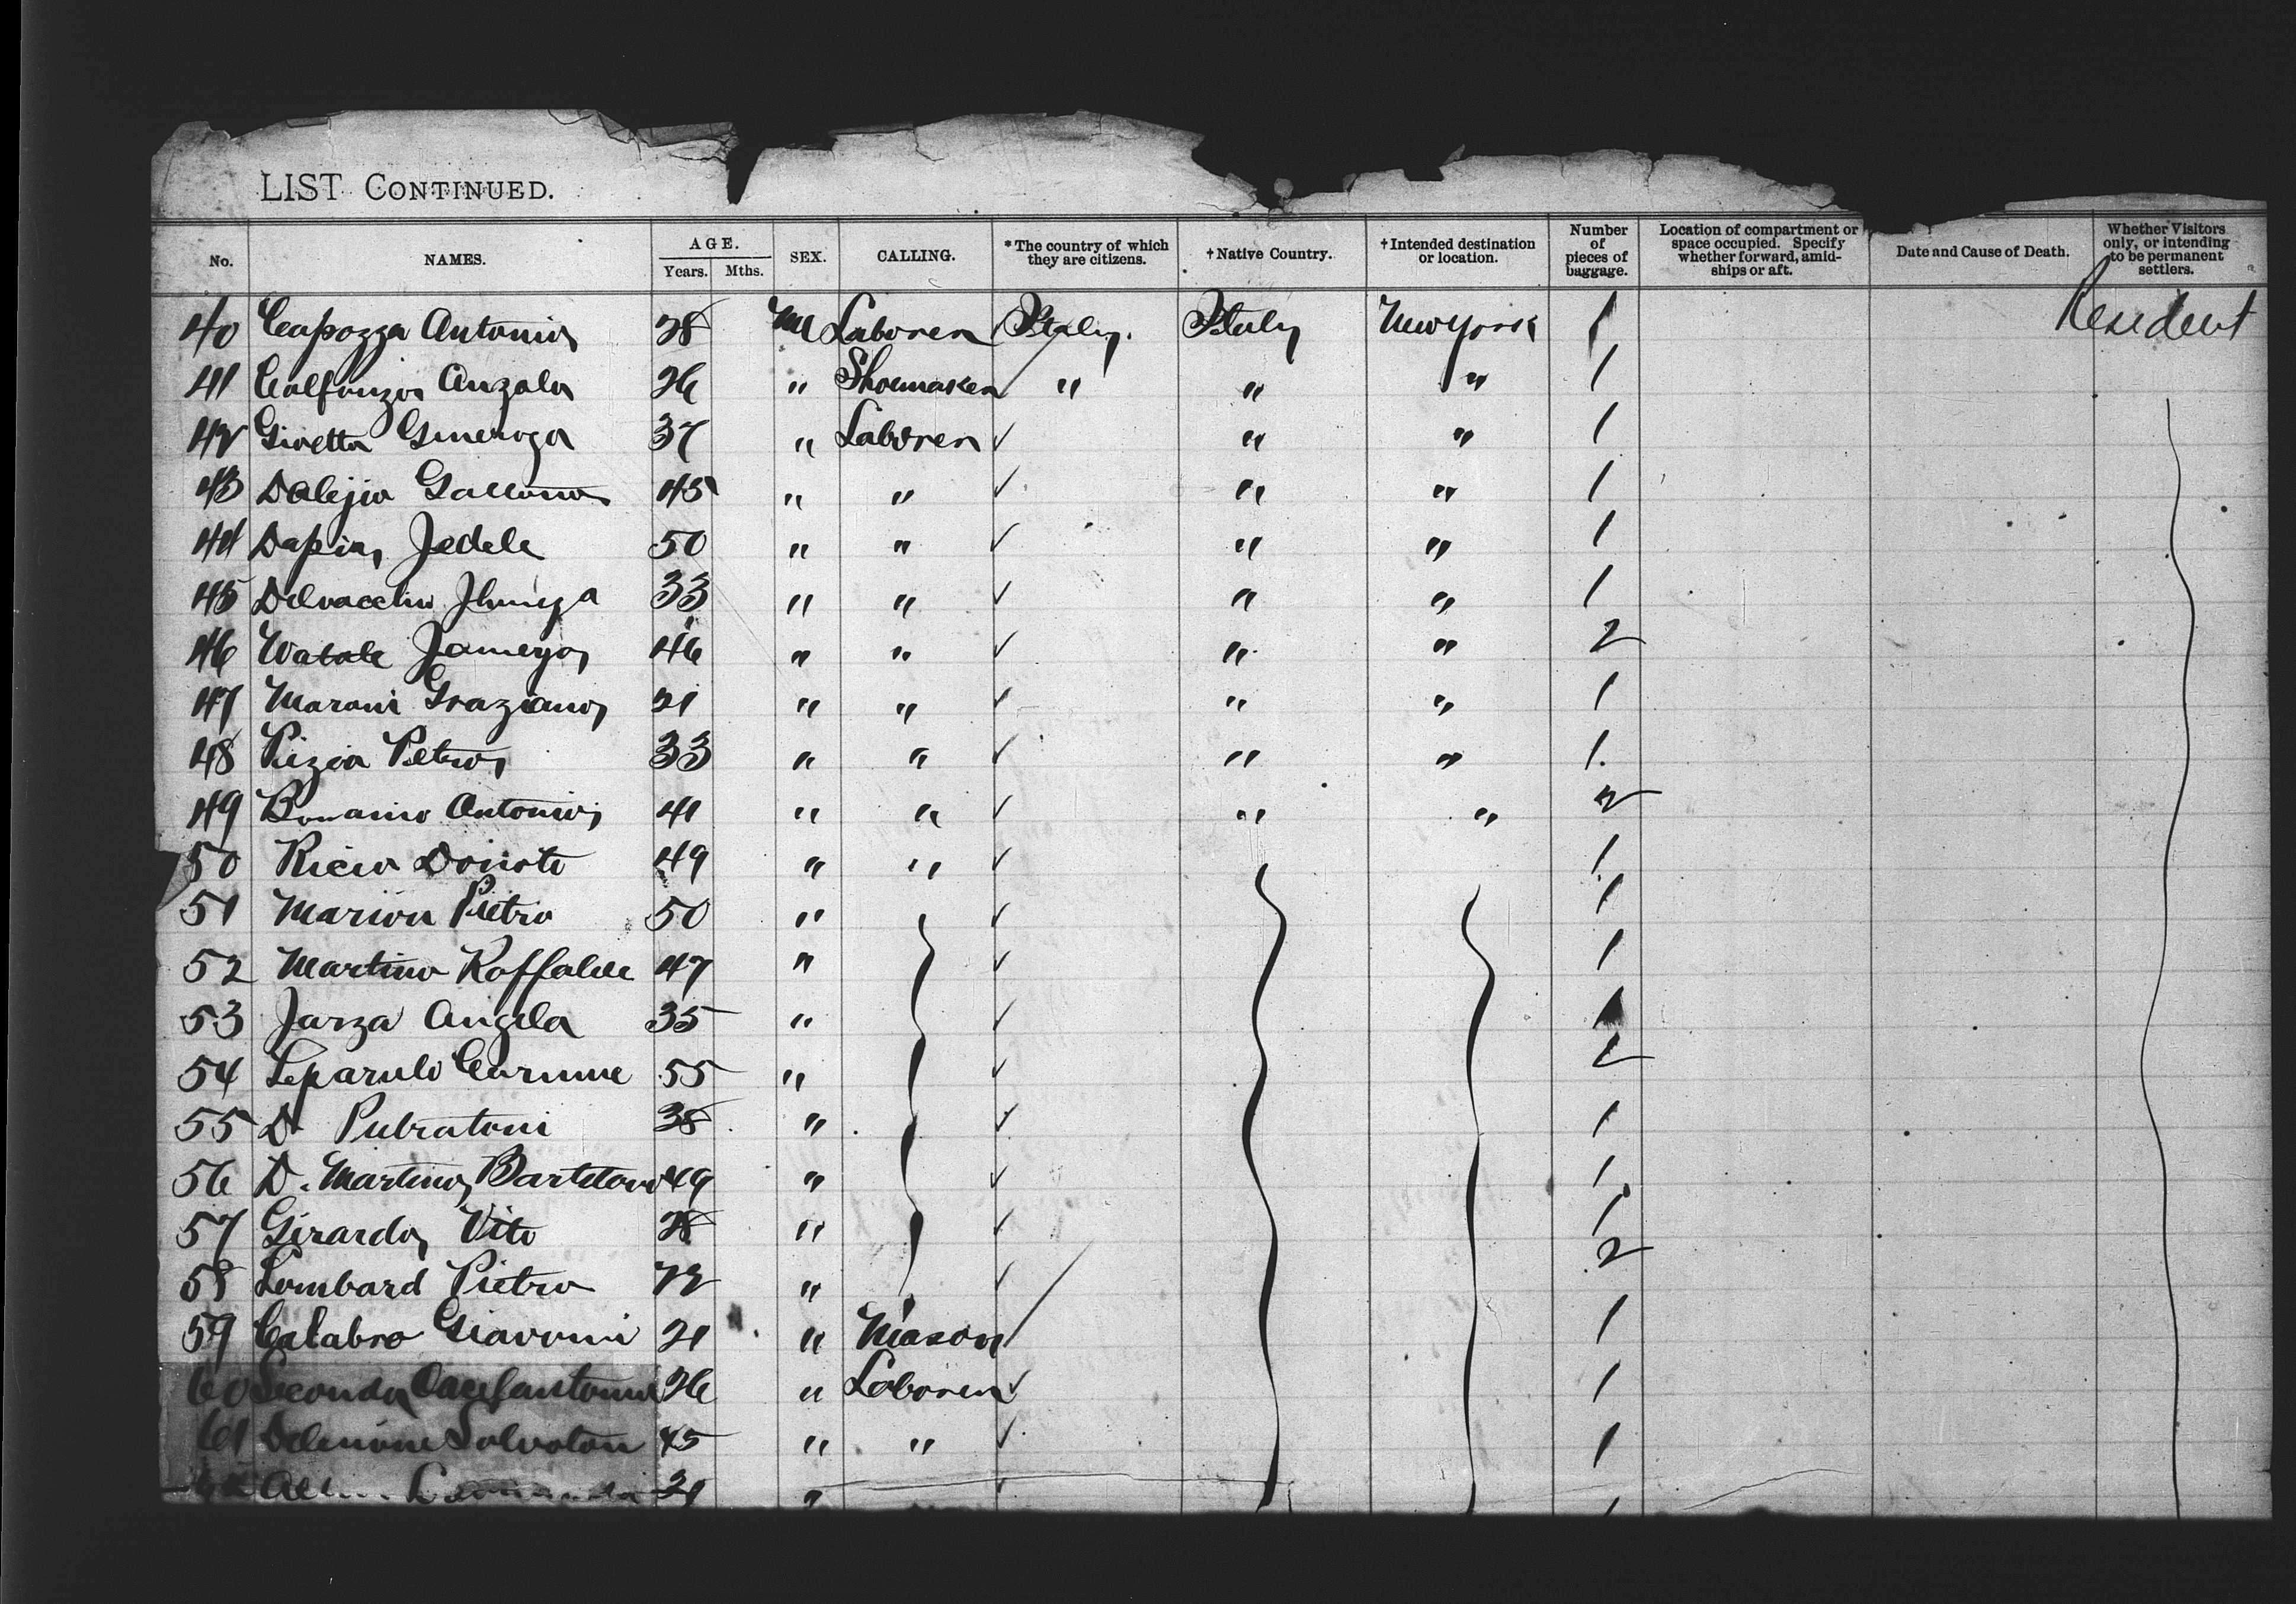 LIST CONTINUED.
No. NAMES. AGE. Years. Mths. SEX. CALLING. *The country of which they are citizens. †Native Country. †Intended destination or location. Number of pieces of baggage. Location of compartment or space occupied. Specify whether forward, amidships or aft. Date and Cause of Death. Whether Visitors only, or intending to be permanent settlers.
40 Capozza Antonio 28 M Laborer Italy. Italy New York 1 Resident
41 Angelo 26 " Shoemaker " " " 1
42 37 " Laborer ✓ " " 1
43 Dalejio 45 " " ✓ " " 1
44 50 " " ✓ " " 1
45 Delvacchio 33 " " ✓ " " 1
46 46 " " ✓ " " 2
47 Marani Graziano 21 " " ✓ " " 1
48 Pizia Pietro 33 " " ✓ " " 1
49 Antonio 41 " " ✓ " " 2
50 Ricio Donato 49 " " ✓ 1
51 Marion Pietro 50 " ✓ 1
52 Martino Raffaele 47 " ✓ 1
53 Jarza Angela 35 " ✓ 1
54 Leparulo Carmine 55 " ✓ 2
55 D. 38 " ✓ 1
56 D. Martino 49 " ✓ 1
57 Girardo Vito 28 " ✓ 1
58 Lombard Pietro 72 " ✓ 2
59 Calabro Giavonni 21 " Mason 1
60 Seconda 26 " Laborer ✓ 1
61 Salvatore 45 " " ✓ 1
21 " ✓